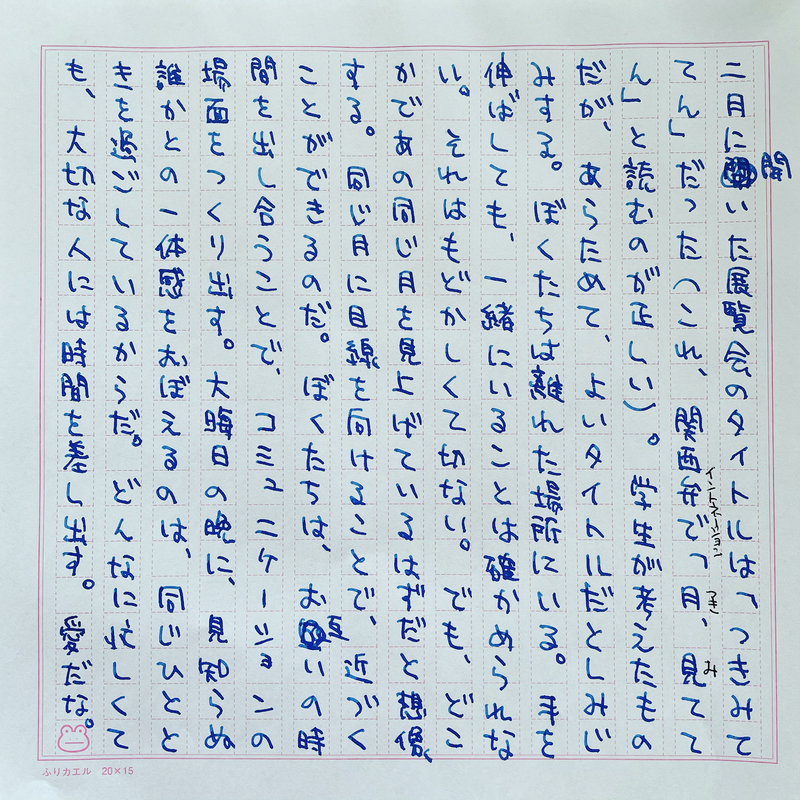 二月に開いた展覧会のタイトルは「つきみて
てん」だった（これ、関西弁で「月、見てて
イントネーション
つき
み
ん」と読むのが正しい）。学生が考えたもの
だが、あらためて、よいタイトルだとしみじ
みする。ぼくたちは離れた場所にいる。手を
伸ばしても、一緒にいることは確かめられな
い。それはもどかしくて切ない。でも、どこ
かであの同じ月を見上げているはずだと想像、
する。同じ月に目線を向けることで、近づく
ことができるのだ。ぼくたちは、お互いの時
間を出し合うことで、コミュニケーションの
場面をつくり出す。大晦日の晩に、見知らぬ
誰かとの一体感をおぼえるのは、同じひとと
きを過ごしているからだ。どんなに忙しくて
も、大切な人には時間を差し出す。愛だな。
ふりカエル 20×15